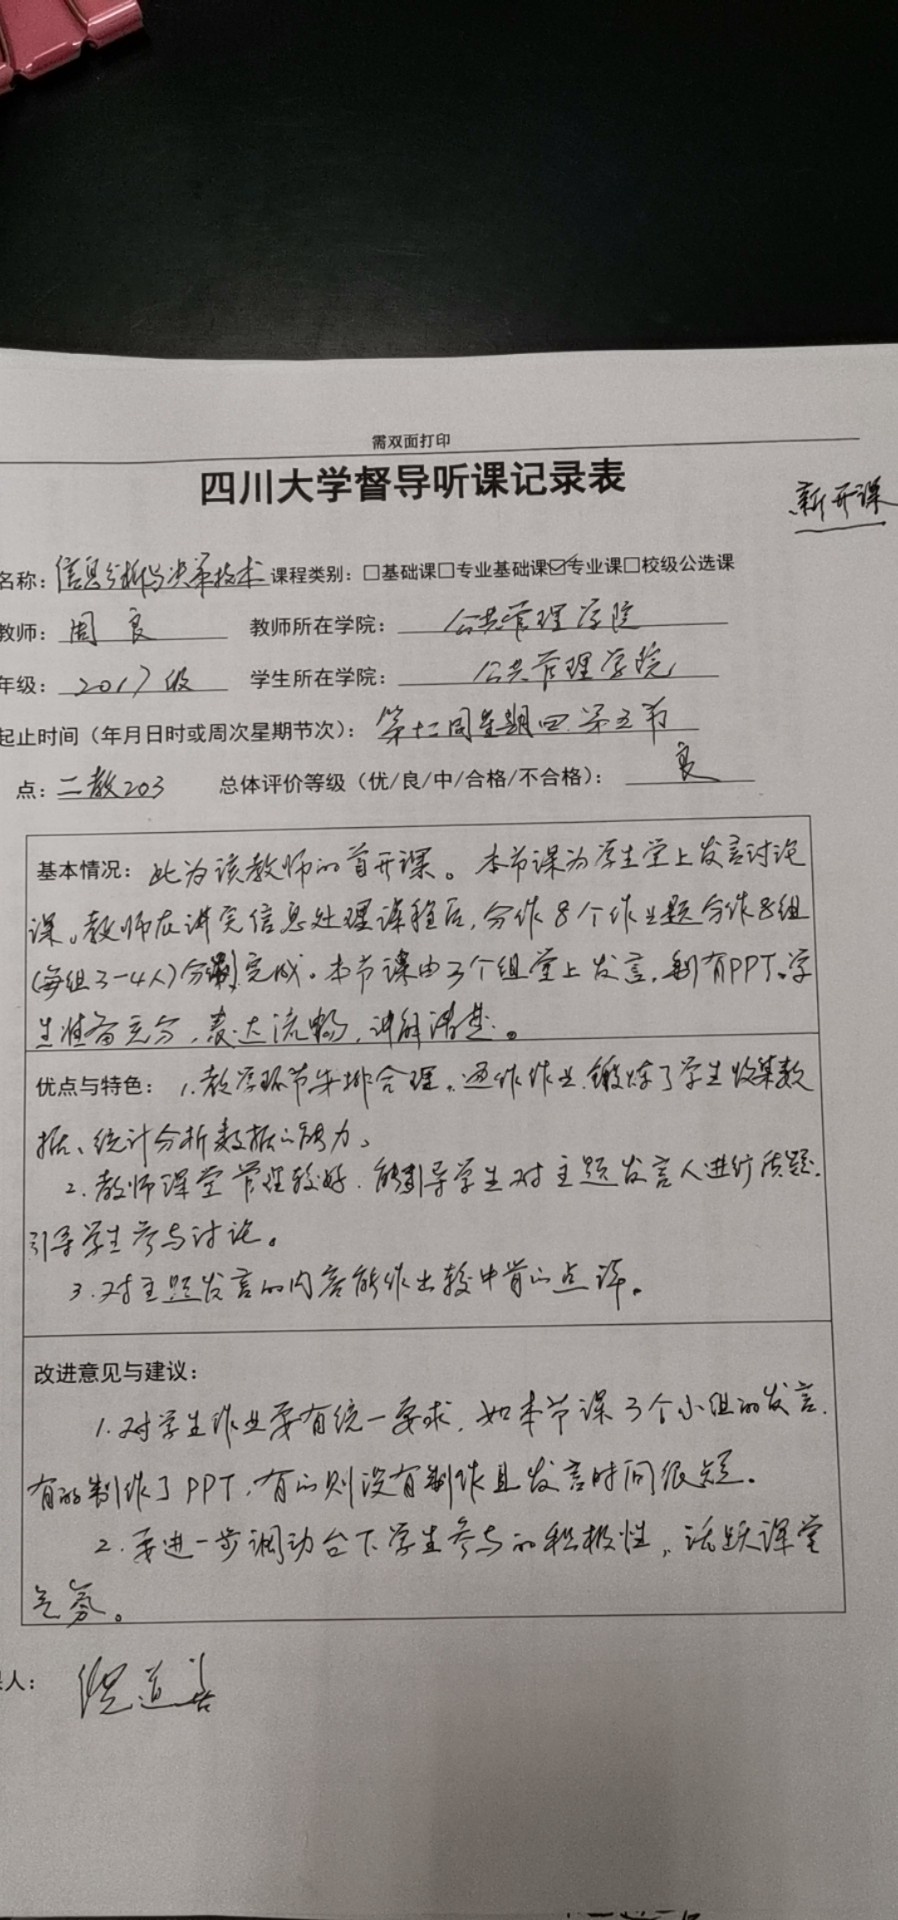 需双面打印
四川大学督导听课记录表
新开课
名称：信息分析与决策技术 课程类别：□基础课□专业基础课☑专业课□校级公选课
教师：周良 教师所在学院：公共管理学院
年级：2017级 学生所在学院：公共管理学院
起止时间（年月日时或周次星期节次）：第十二周星期四第五节
点：二教203 总体评价等级（优/良/中/合格/不合格）：良
基本情况：此为该教师的首开课。本节课为学生堂上发言讨论
课。教师在讲完信息处理课程后，分作8个作业题分作8组
(每组3-4人)分别完成。本节课由3个组堂上发言，有PPT。学
生准备充分，表达流畅，讲解清楚。
优点与特色：1.教学环节安排合理。通作作业，锻炼了学生收集数
据、统计分析数据的能力。
2.教师课堂管理较好，能引导学生对主题发言人进行质题，
引导学生参与讨论。
3.对主题发言的内容能作出较中肯的点评。
改进意见与建议：
1.对学生作业要有统一要求，如本节课3个小组的发言，
有的制作了PPT，有的则没有制作且发言时间很短。
2.要进一步调动台下学生参与的积极性，活跃课堂
气氛。
人：